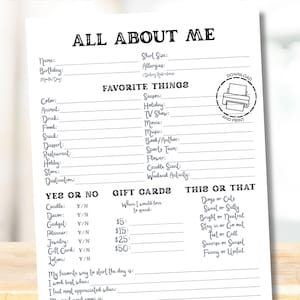 ALL ABOUT ME
Name: Shirt Size:
Birthday: Allergies:
(Month/Day) (Dietary Restrictions)
FAVORITE THINGS
Color: Season:
Animal: Holiday:
Drink: TV Show:
Food: Movie:
Snack: Music:
Dessert: Book/Author:
Restaurant: Sports Team:
Hobby: Flower:
Store: Candle Scent:
Destination: Weekend Activity:
DOWNLOAD
AND PRINT
YES OR NO GIFT CARDS THIS OR THAT
Candle: Y/N When I would love
to spend:
Dogs or Cats
Decor: Y/N Sweet or Salty
Gadget: Y/N $5: Bright or Neutral
Planner: Y/N $15: Stay in or Go out
Jewelry: Y/N $25: Hot or Cold
Gift Card: Y/N $50: Sunrise or Sunset
Lotion: Y/N Funny or Heartfelt
My favorite way to start the day is:
I work best when:
I feel most appreciated when: